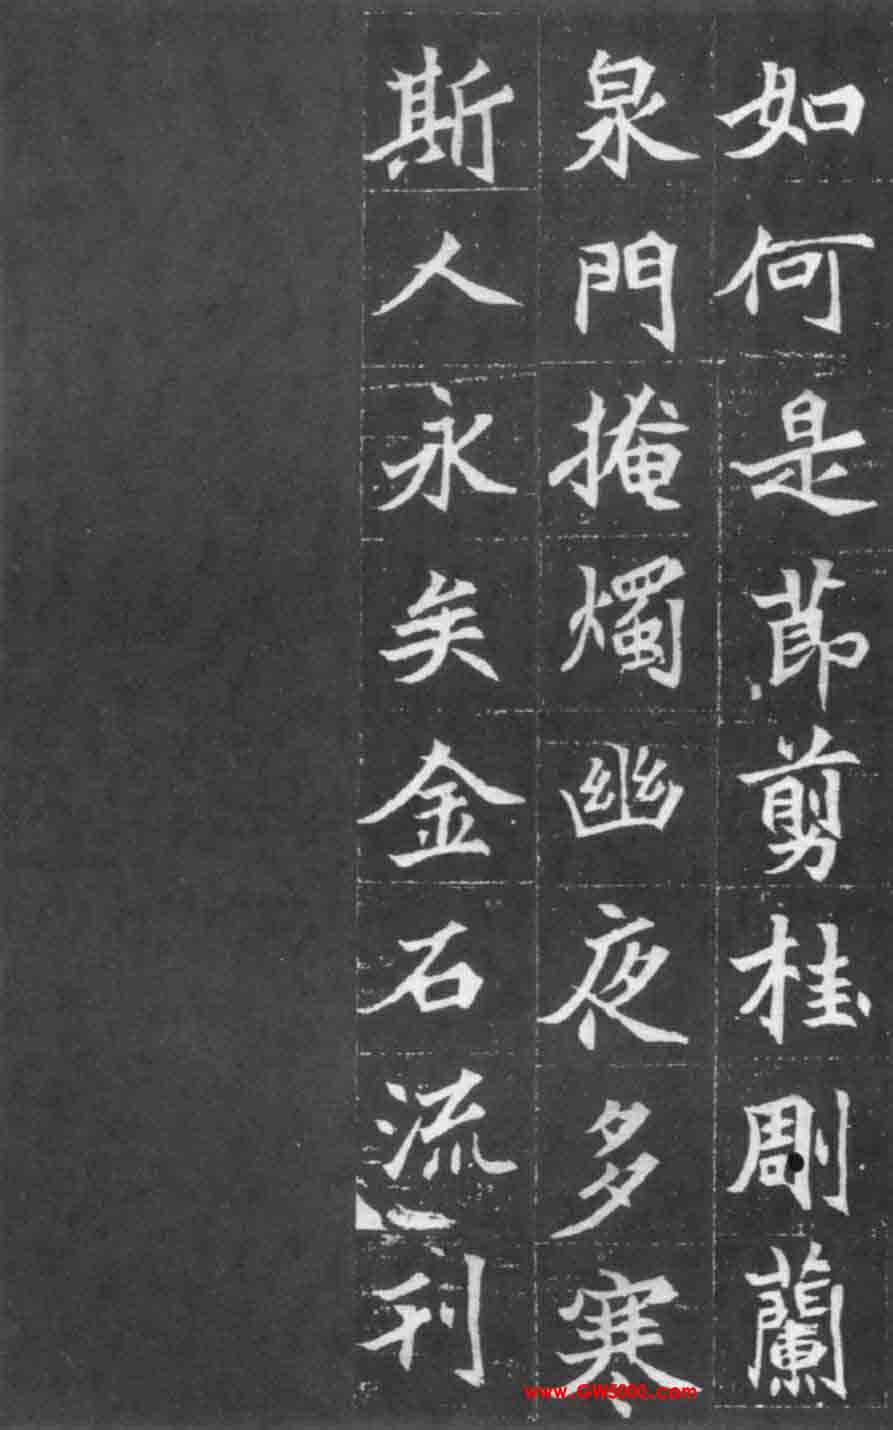 如何是莭剪桂剮蘭
泉門掩燭幽夜多寒
斯人永矣金石流刊
www.GW5000.com